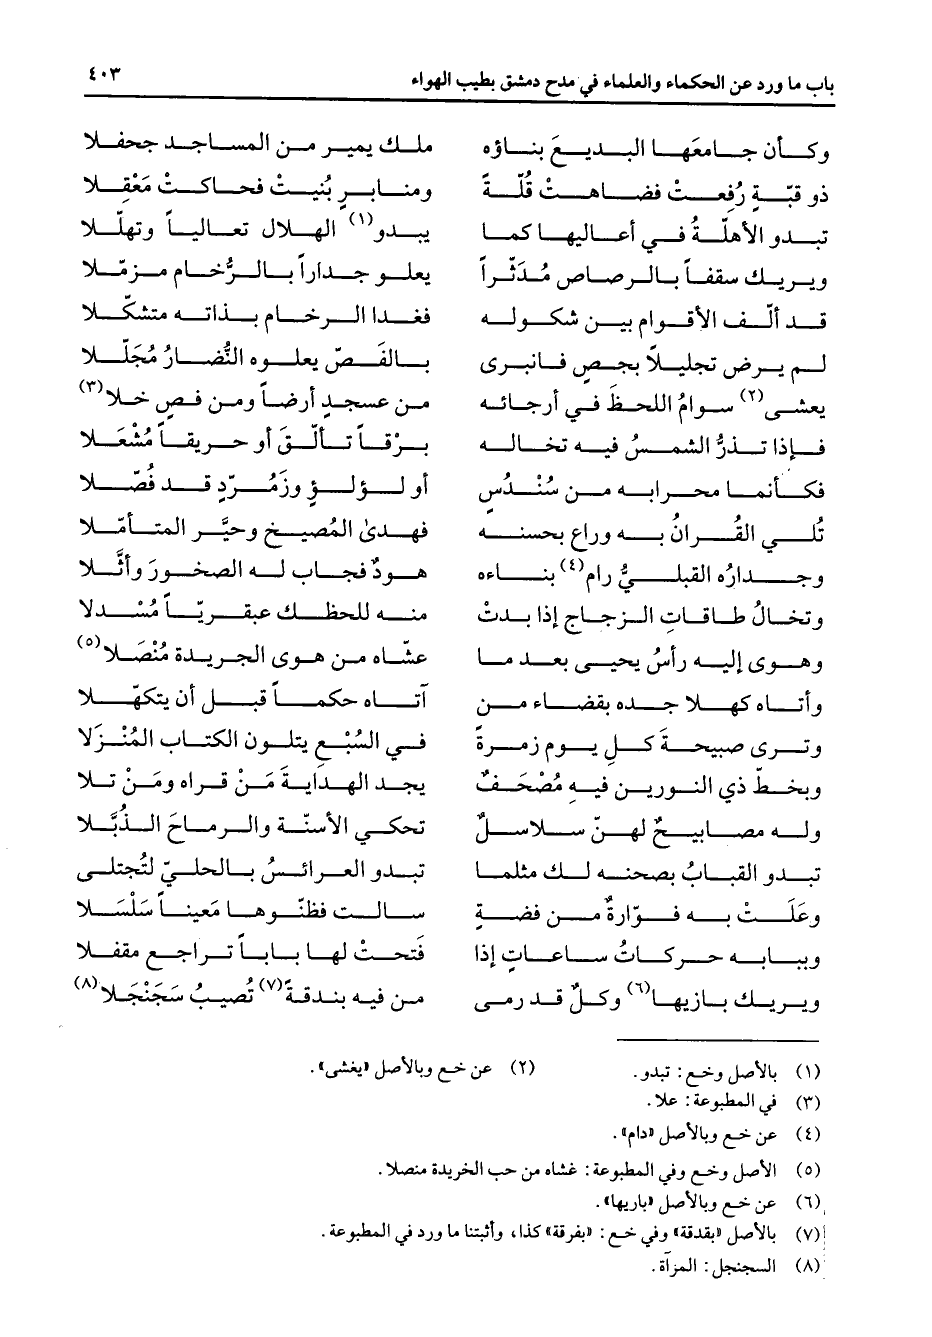 باب ما ورد عن الحكماء والعلماء في مدح دمشق بطيب الهواء ٤٠٣
وكأن جامعها البديع بناؤه ملك يمير من المساجد جحفلا
ذو قبّةٍ رُفعتْ فضاهتْ قُلّةً ومنابرٍ بُنيتْ فحاكتْ مَعْقِلا
تبدو الأهلّة في أعاليها كما يبدو(١) الهلال تعالياً وتهلّلا
ويريك سقفاً بالرصاص مُدثّراً يعلو جداراً بالرُّخام مزمّلا
قد ألّف الأقوام بين شكوله فغدا الرخام بذاته متشكّلا
لم يرض تجليلاً بجصٍ فانبرى بالفصّ يعلوه النُّضارُ مُجَلّلا
يعشى(٢) سوامُ اللحظ في أرجائه من عسجدٍ أرضاً ومن فصٍ خلا(٣)
فإذا تذرُّ الشمسُ فيه تخاله برْقاً تألّقَ أو حريقاً مُشْعَلا
فكأنما محرابه من سُنْدُسٍ أو لؤلؤٍ وزمُرّدٍ قد فُصّلا
تُلي القُرانُ به وراع بحسنه فهدىٰ المُصيخَ وحيَّر المتأمّلا
وجدارُه القبليُّ رام(٤) بناءه هودٌ فجاب له الصخورَ وأثَّلا
وتخالُ طاقاتِ الزجاج إذا بدتْ منه للحظك عبقريّاً مُسْدلا
وهوى إليه رأسُ يحيى بعد ما عشّاه من هوى الجريدة مُنْصَلا(٥)
وأتاه كهلا جده بقضاء من آتاه حكماً قبل أن يتكهّلا
وترى صبيحةَ كلِ يوم زمرةً في السُبْع يتلون الكتاب المُنْزلا
وبخطّ ذي النورين فيه مُصْحَفٌ يجد الهدايةَ مَنْ قراه ومَنْ تلا
وله مصابيحٌ لهنّ سلاسلٌ تحكي الأسنّة والرماحَ الذُبَّلا
تبدو القبابُ بصحنه لك مثلما تبدو العرائسُ بالحليّ لتُجتلى
وعَلَتْ به فوّارةٌ من فضةٍ سالت فظنّوها مَعيناً سَلْسَلا
وببابه حركاتُ ساعاتٍ إذا فتحتْ لها باباً تراجع مقفلا
ويريك بازيها(٦) وكلٌ قد رمى من فيه بندقةً(٧) تُصيبُ سَجَنْجَلا(٨)
(١) بالأصل وخع: تبدو. (٢) عن خع وبالأصل «يغشى».
(٣) في المطبوعة: علا.
(٤) عن خع وبالأصل «دام».
(٥) الأصل وخع وفي المطبوعة: غشاه من حب الخريدة منصلا.
(٦) عن خع وبالأصل «باريها».
(٧) بالأصل «بقدقة» وفي خع: «بفرقة» كذا، وأثبتنا ما ورد في المطبوعة.
(٨) السجنجل: المرآة.